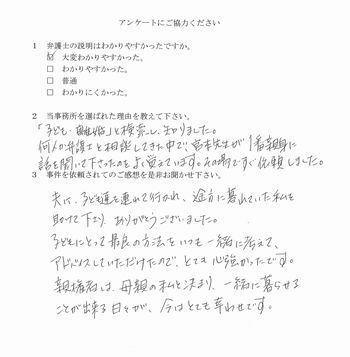 アンケートにご協力ください
1 弁護士の説明はわかりやすかったですか。
☑ 大変わかりやすかった。
□ わかりやすかった。
□ 普通
□ わかりにくかった。
2 当事務所を選ばれた理由を教えて下さい。
「子ども 離婚」と検索し、きかりました。
何人の弁護士と相談してきた中で、宮本先生が1番親身に
話を聞いて下さったのをよく覚えています。その場ですぐ依頼しました。
3 事件を依頼されてのご感想を是非お聞かせ下さい。
夫に、子ども達を連れて行かれ、途方に暮れていた私を
助けて下さり、ありがとうございました。
子どもにとって最良の方法をいつも一緒に考えて、
アドバイスしていただけたので、とても心強かったです。
親権者は、母親の私と決まり、一緒に暮らせる
ことが出来る日々が、今はとても幸わせです。